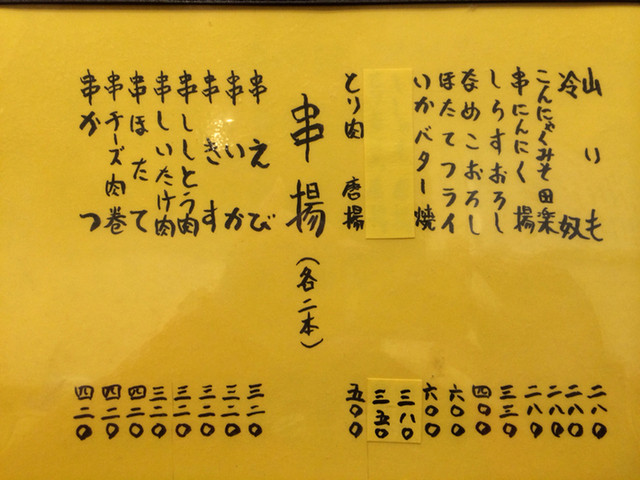 山いも 二八〇
冷奴 二八〇
こんにゃくみそ田楽 二八〇
串にんにく揚 二八〇
しらすおろし 三三〇
なめこおろし 四〇〇
ほたてフライ 六〇〇
いかバター焼 六〇〇
三八〇
三五〇
とり肉唐揚 五〇〇
串揚(各二本)
串えび 三二〇
串いか 三二〇
串きす 三二〇
串ししとう肉 三二〇
串しいたけ肉 三二〇
串ほたて 四二〇
串チーズ肉巻 四二〇
串かつ 四二〇